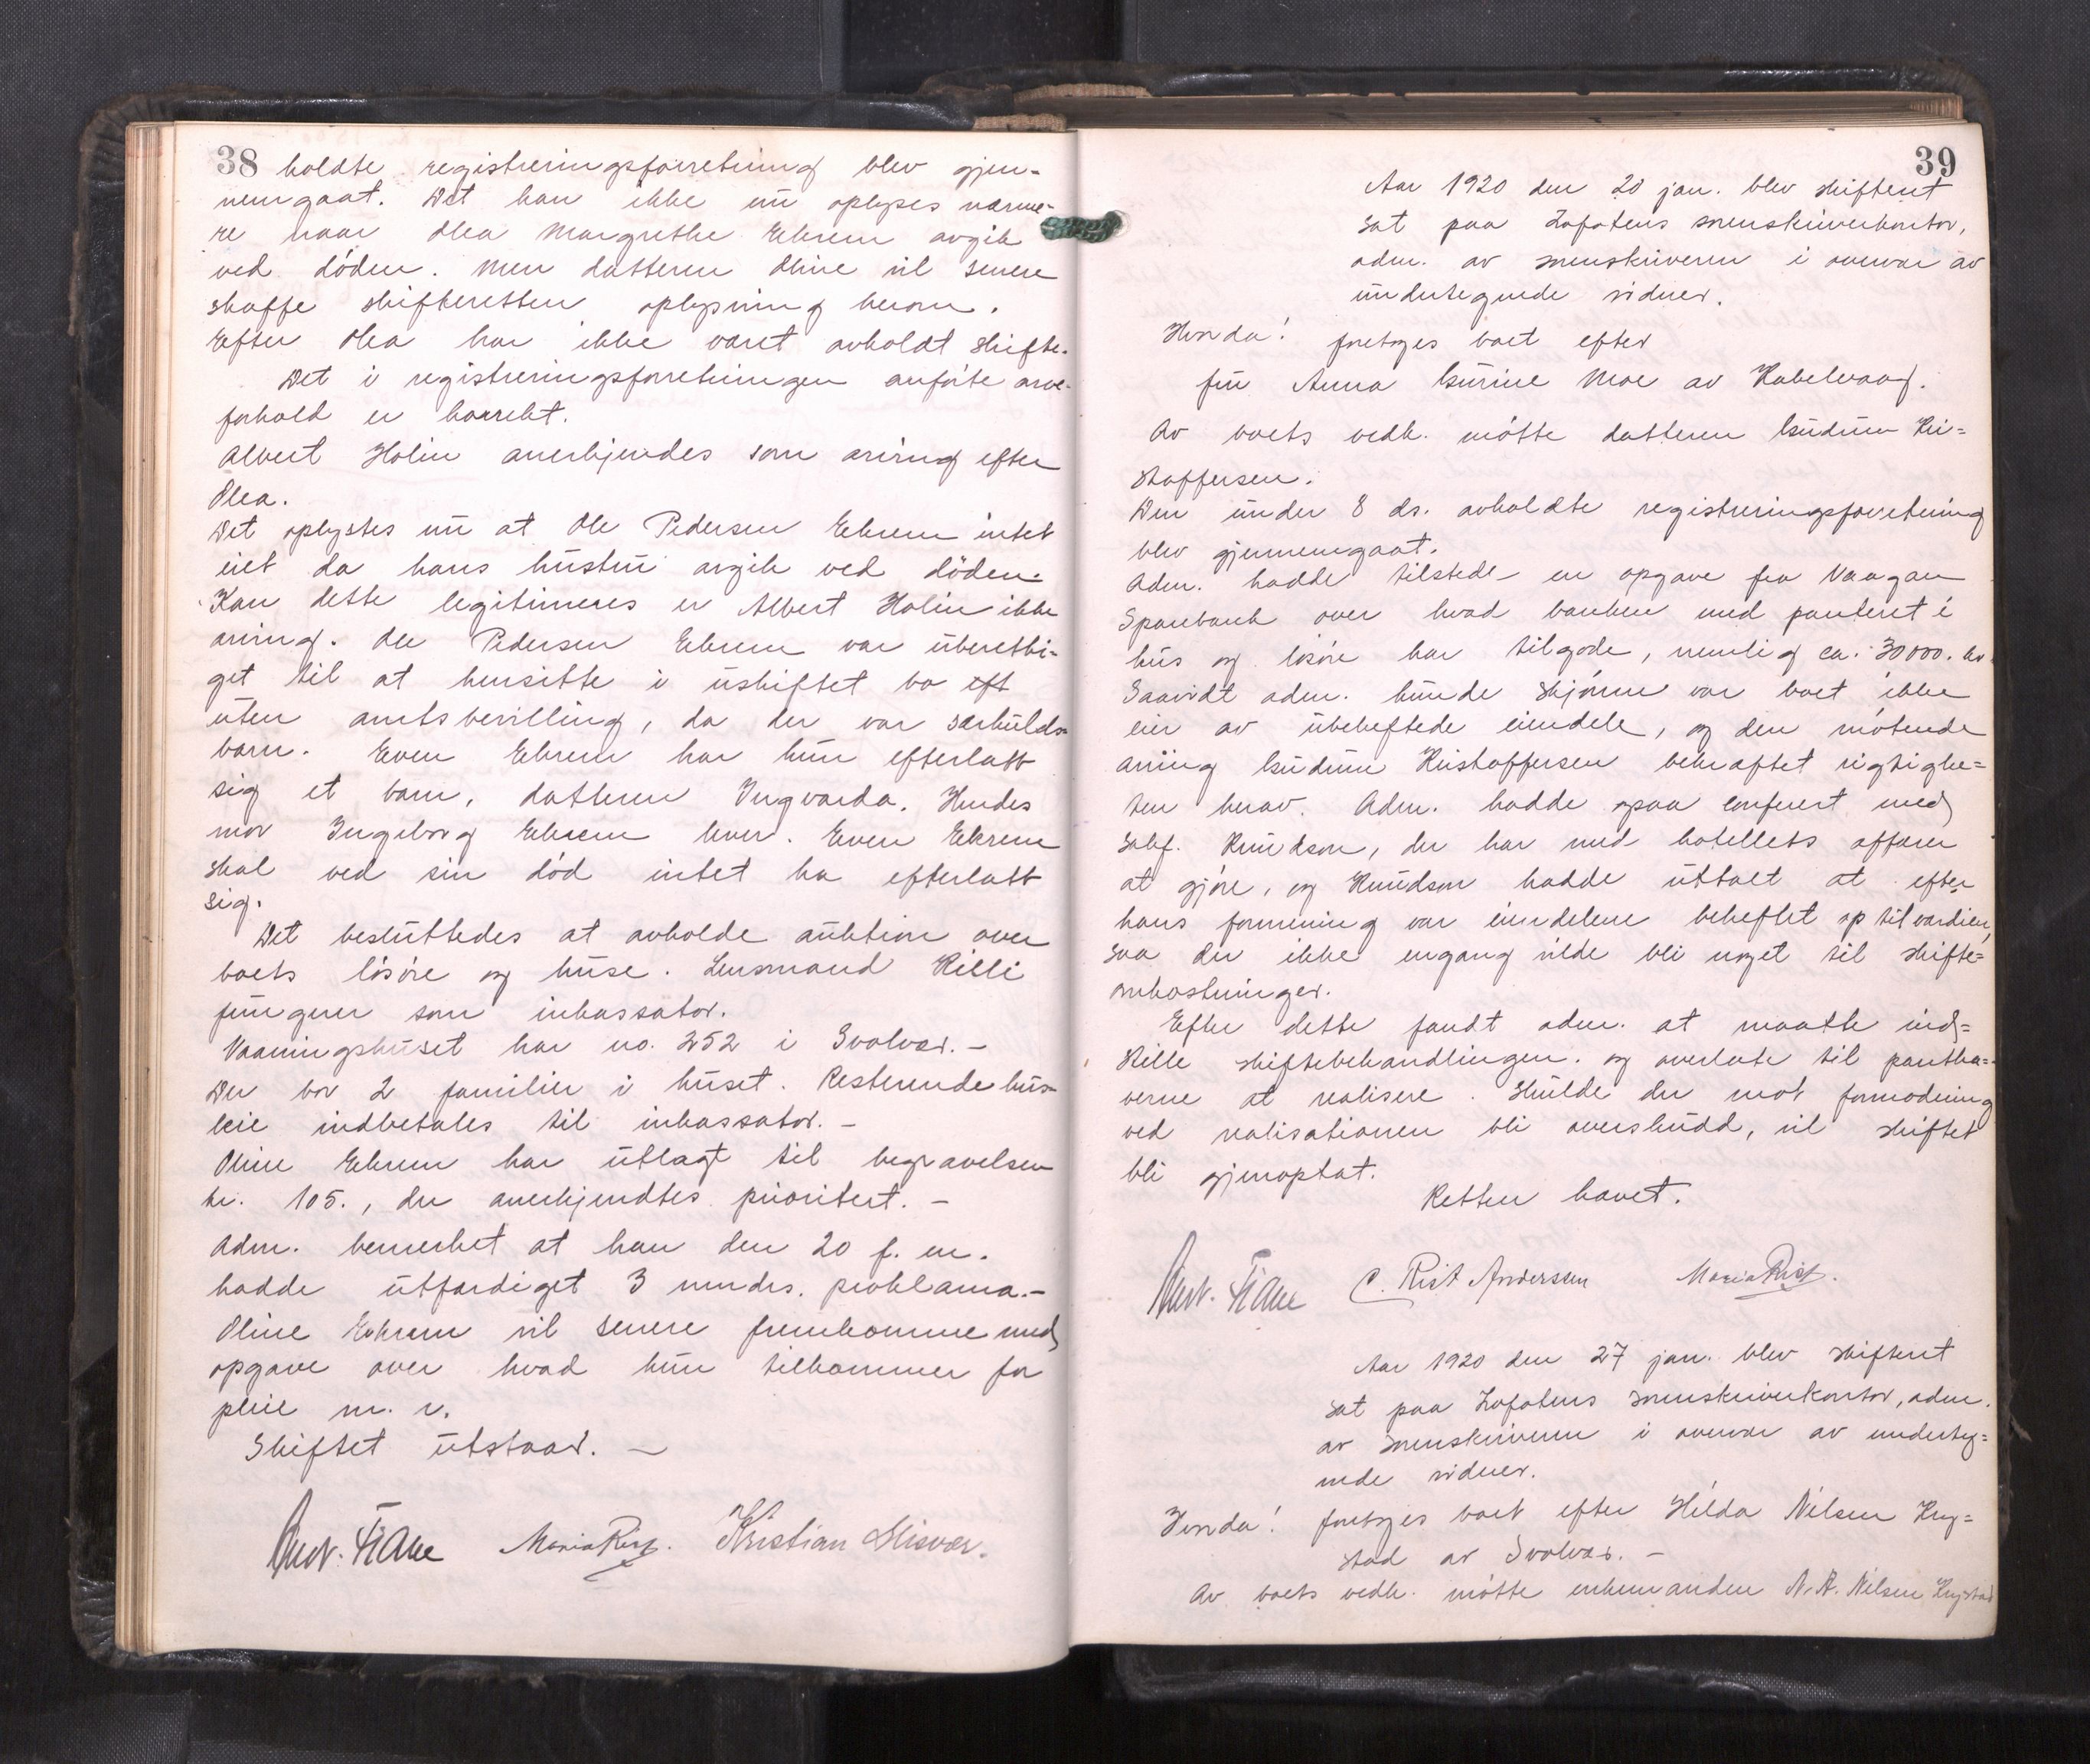 38 holdte registreringsforretning blev gjen-
nemgaat. Det kan ikke nu oplyses nærme-
re naar Olea Margrethe Ekrem avgik
ved døden. Men datteren Oline vil senere
skaffe skifteretten oplysning herom.
Efter Olea har ikke været avholdt skifte.
Det i registreringsforretningen anførte arve-
forhold er korrekt.
Albert Holin anerkjendes som arving efter
Olea.
Det oplystes nu at Ole Pedersen Ekrem intet
eiet da hans hustru avgik ved døden.
Kan dette legitimeres er Albert Holin ikke
arving. Ole Pedersen Ekrem var uberetti-
get til at hensitte i uskiftet bo eft
uten amtsbevilling, da der var særkulds-
barn. Even Ekrem har kun efterlatt
sig et barn, datteren Ingvarda. Hendes
mor Ingeborg Ekrem lever. Even Ekrem
skal ved sin død intet ha efterlatt
sig.
Det besluttedes at avholde auktion over
boets løsøre og huse. Lensmand Killi
fungerer som inkassator.
Vaaningshuset har no. 252 i Svolvær. -
Der bor 2 familier i huset. Resterende hus-
leie indbetales til inkassator. -
Oline Ekrem har utlagt til begravelsen
kr. 105., der anerkjendtes prioritert. -
Adm. bemerket at han den 20 f. m.
hadde utfærdiget 3 mndrs. proklama. -
Oline Ekrem vil senere fremkomme med
opgave over hvad hun tilkommer for
pleie m. v.
Skiftet utstaar. -
Maria Rist. Kristian
39
Aar 1920 den 20 jan. blev skifteret
sat paa Lofotens sorenskriverkontor,
adm. av sorenskriveren i overvær av
undertegnede vidner.
Hvorda! foretoges boet efter
fru Anna Gurine Moe av Kabelvaag.
Av boets vedk. møtte datteren Gudrun Kri-
stoffersen.
Den under 8 ds. avholdte registreringsforretning
blev gjennemgaat.
Adm. hadde tilstede en opgave fra Vaagan
Sparebank over hvad banken med panteret i
hus og løsøre har tilgode, nemlig ca. 30000. kr.
Saavidt adm. kunde skjønne var boet ikke
eier av ubeheftede eiendele, og den møtende
arving Gudrun Kristoffersen bekræftet rigtighe-
ten herav. Adm. hadde ogsaa conferert med
sakf. Knudson, der har med hotellets affærer
at gjøre, og Knudson hadde uttalt at efter
hans formening var eiendelene beheftet op til værdien,
saa der ikke engang vilde bli noget til skifte-
omkostninger.
Efter dette fandt adm. at maatte ind-
stille skiftebehandlingen. og overlate til pantha-
verne at realisere. Skulde der mot formodning
ved realisationen bli overskudd, vil skiftet
bli gjenoptat.
Retten hævet.
C. Rist Anderssen Maria Rist.
Aar 1920 den 27 jan. blev skifteret
sat paa Lofotens sorenskriverkontor, adm.
av sorenskriveren i overvær av underteg-
nede vidner.
Hvorda! foretoges boet efter Hilda Nilsen Kry-
stad av Svolvær. -
Av boets vedk. møtte enkemanden N. A. Nilsen Krystad